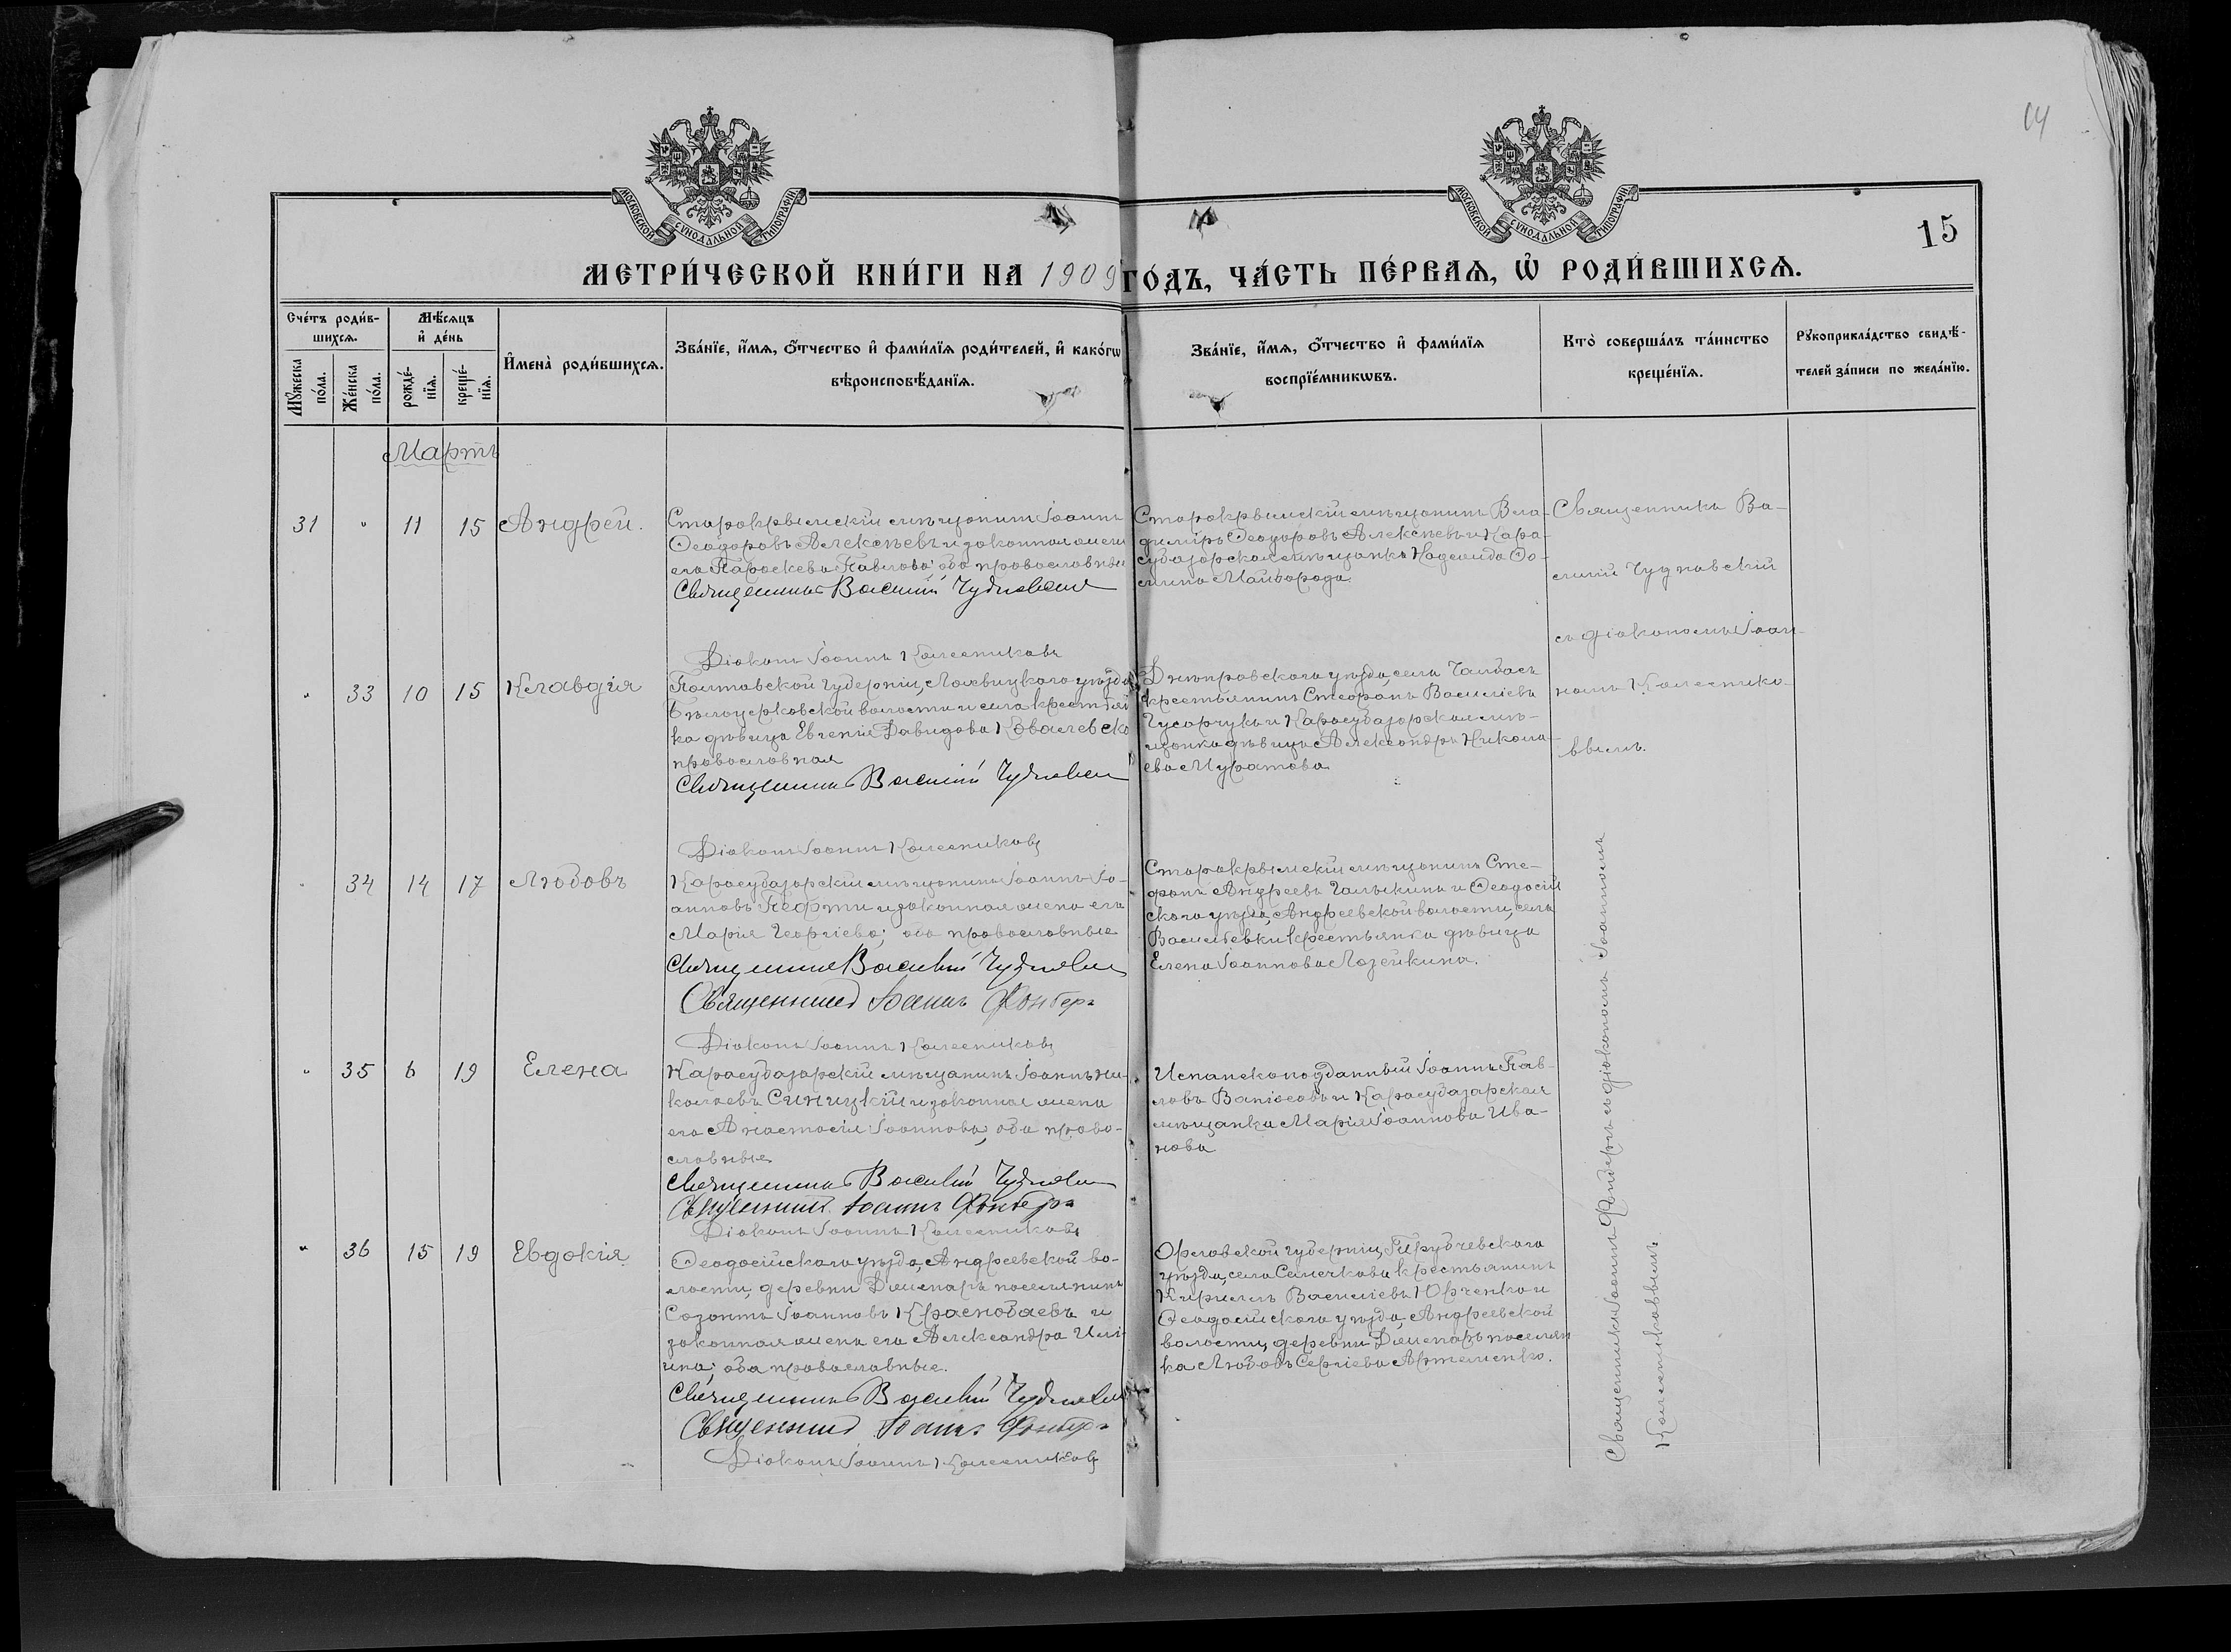 14
15
МОСКОВСКОЙ СѴНОДАЛЬНОЙ ТИПОГРАФІИ
МОСКОВСКОЙ СѴНОДАЛЬНОЙ ТИПОГРАФІИ
МЕТРИ́ЧЕСКОЙ КНИ́ГИ НА 1909 ГО́ДЪ, ЧА́СТЬ ПЕ́РВАѦ, Ѡ҆ РОДИ́ВШИХСѦ.
Сче́тъ роди́в-
шихсѧ.
Мꙋжеска по́ла.
Же́нска по́ла.
Мѣ́сѧцъ
и҆ де́нь
рожде́-
нїѧ.
креще́-
нїѧ.
И҆мена̀ роди́вшихсѧ.
Зва́нїе, и҆́мѧ, ѻ҆́тчество и҆ фами́лїѧ роди́телей, и҆ како́гѡ
вѣроисповѣ́данїѧ.
Зва́нїе, и҆́мѧ, ѻ҆́тчество и҆ фами́лїѧ
воспрїе́мникѡвъ.
Кто̀ соверша́лъ та́инство
креще́нїѧ.
Рꙋкоприкла́дство свидѣ́-
телей за́писи по жела́нїю.
Мартъ
31 " 11 15 Андрей.
Старокрымскій мѣщанинъ Іоаннъ
Ѳеодоровъ Алексѣевъ и законная жена
его Параскева Павлова; оба православные
Священникъ Василій Чудновскій
Діаконъ Іоаннъ Колесниковъ
Старокрымскій мѣщанинъ Вла-
диміръ Ѳеодоровъ Алексѣевъ и Кара-
субазарская мѣщанка Надежда Ѳо-
мина Майборода.
Священникъ Ва-
силій Чудновскій
съ діакономъ Іоан-
номъ Колеснико-
вымъ.
" 33 10 15 Клавдія
Полтавской губерніи, Лохвицкаго уѣзда
Бѣлоцерковской волости и села крестьян
ка дѣвица Евгенія Давидова Ковалевска
православная
Священникъ Василій Чудновскій
Діаконъ Іоаннъ Колесниковъ
Днѣпровскаго уѣзда, села Чалбасъ
крестьянинъ Стефанъ Василіевъ
Гусарчукъ и Карасубазарская мѣ-
щанка дѣвица Александра Никола-
ева Муратова
" 34 14 17 Любовь
Карасубазарскій мѣщанинъ Іоаннъ Іо-
анновъ и законная жена его
Марія Георгіева; оба православные
Священникъ Василій Чудновскій
Священникъ Іоаннъ Фонберъ
Діаконъ Іоаннъ Колесниковъ
Старокрымскій мѣщанинъ Сте-
фанъ Андреевъ Галыкинъ и Ѳеодосій
скаго уѣзда, Андреевской волости, села
Васильевки крестьянка дѣвица
Елена Іоаннова Лазейкина.
" 35 6 19 Елена
Карасубазарскій мѣщанинъ Іоаннъ Ни-
колаевъ Синицкій и законная жена
его Анастасія Іоаннова; оба право-
славные
Священникъ Василій Чудновскій
Священникъ Іоаннъ Фонберъ
Діаконъ Іоаннъ Колесниковъ
Испанскоподданный Іоаннъ Пав-
ловъ и Карасубазарская
мѣщанка Марія Іоаннова Ива-
нова
" 36 15 19 Евдокія
Ѳеодосійскаго уѣзда, Андреевской во-
лости, деревни поселянинъ
Созонтъ Іоанновъ Краснобаевъ и
законная жена его Александра Илі-
ина; оба православные.
Священникъ Василій Чудновскій
Священникъ Іоаннъ Фонберъ
Діаконъ Іоаннъ Колесниковъ
Орловской губерніи, Трубчевскаго
уѣзда, села Семячкова крестьянинъ
Кириллъ Василіевъ Юрченко и
Ѳеодосійскаго уѣзда, Андреевской
волости, деревни поселян
ка Любовь Сергіева Артеменко.
Священникъ Іоаннъ Фонберъ съ діакономъ Іоанномъ
Колесниковымъ